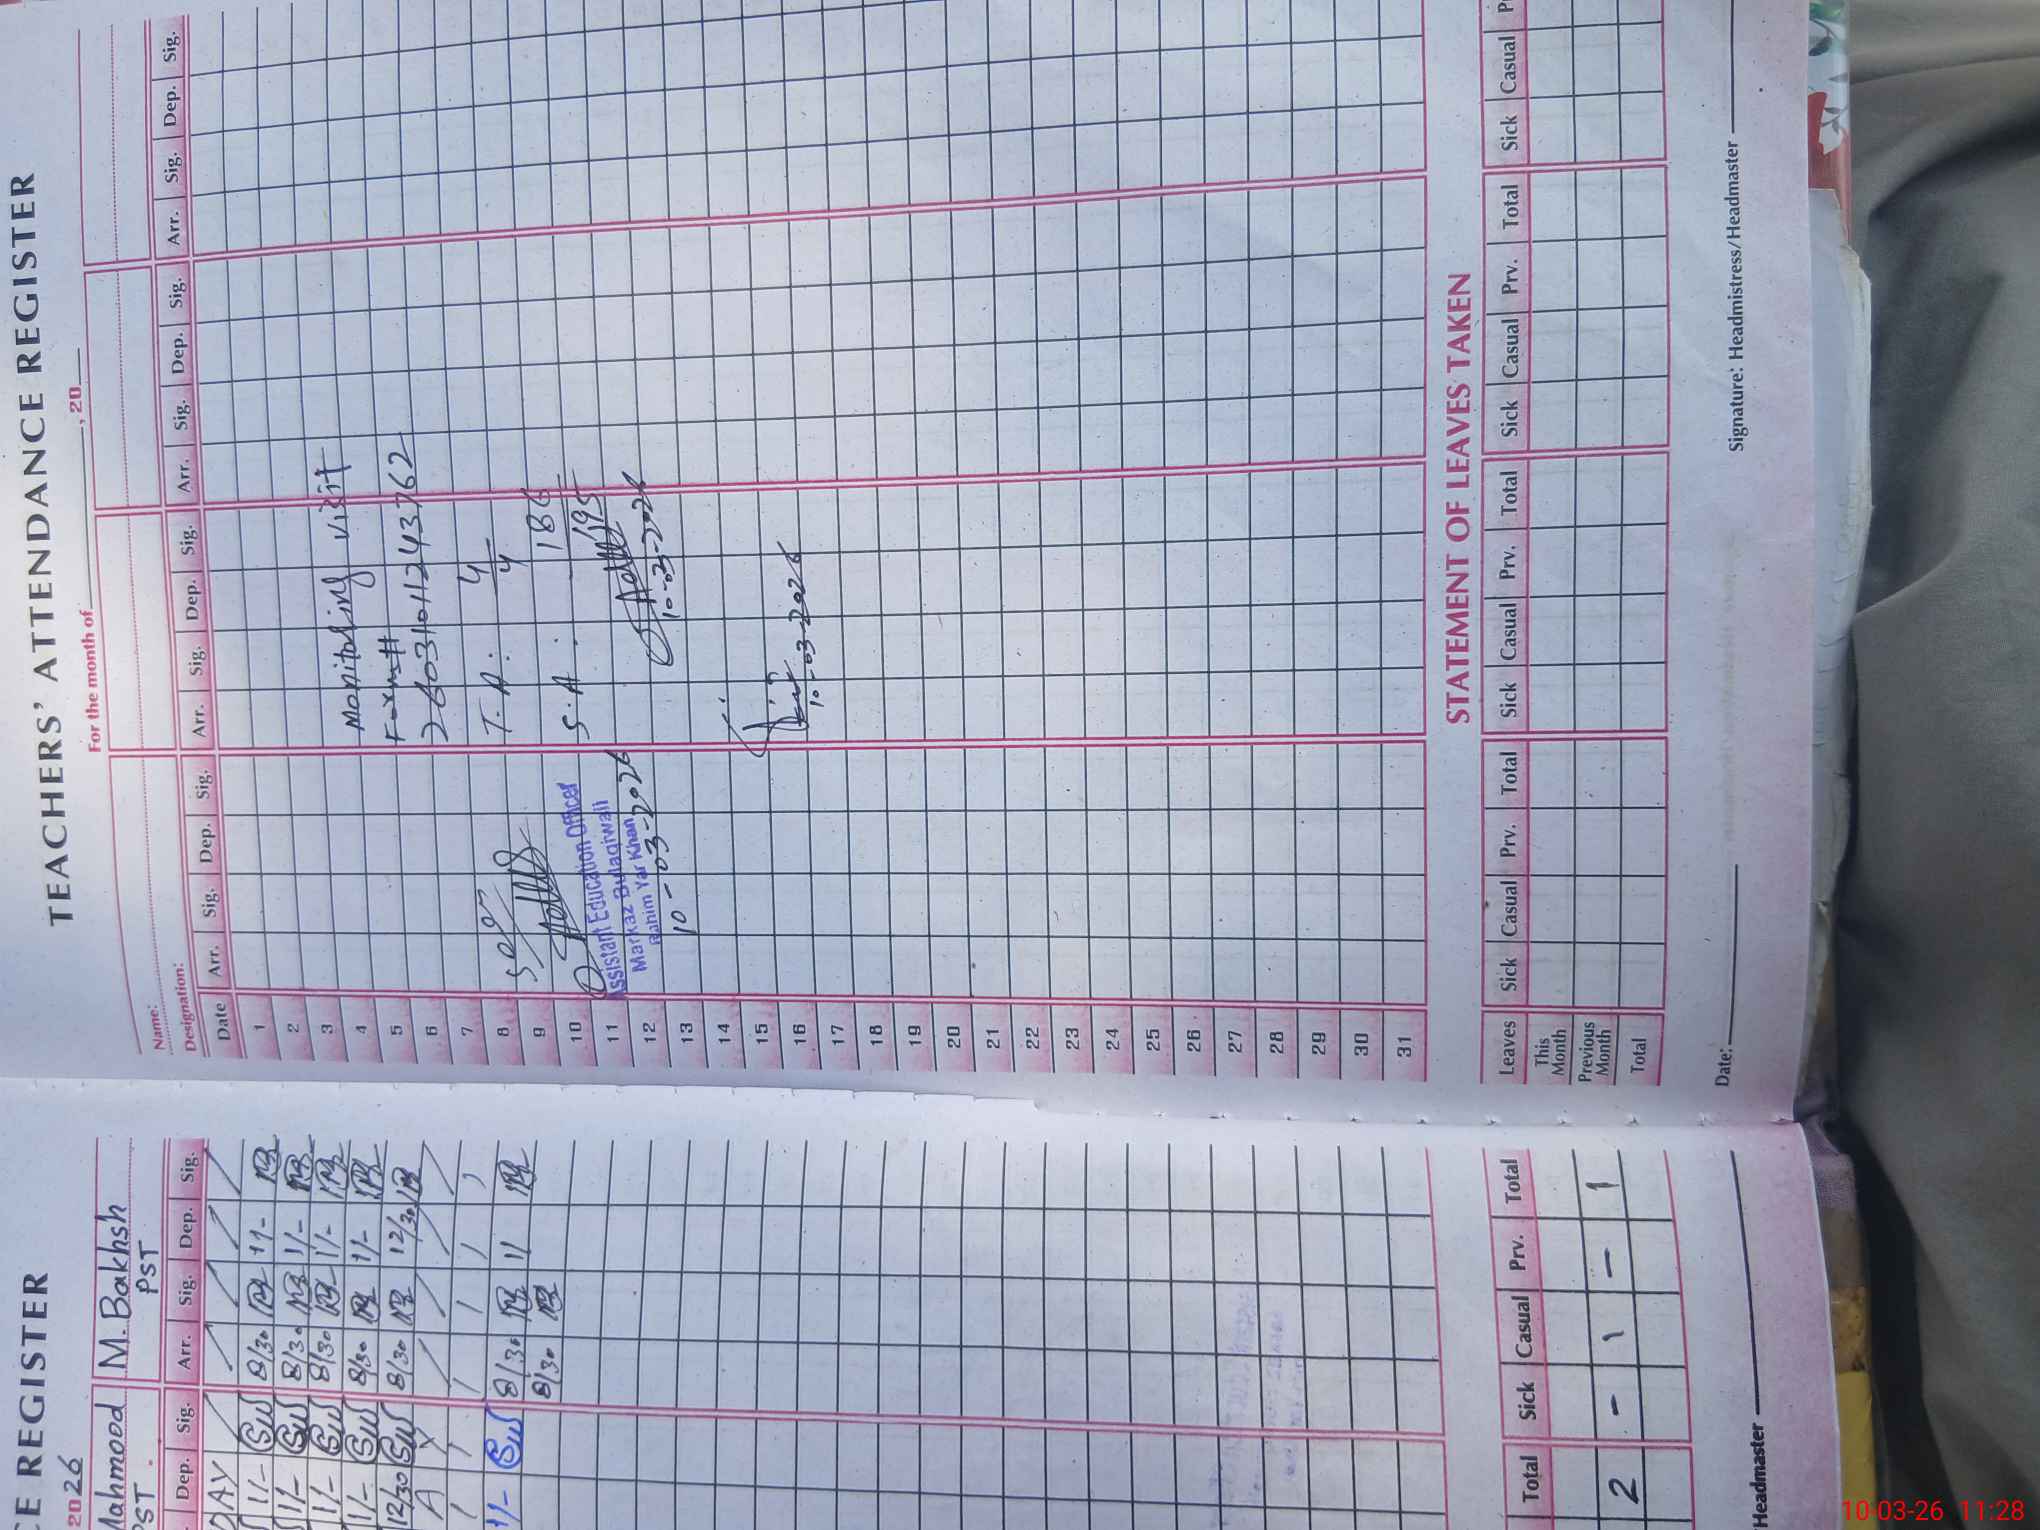 TEACHERS' ATTENDANCE REGISTER
For the month of , 20
Name:
Designation:
Date Arr. Sig. Dep. Sig. Arr. Sig. Dep. Sig. Arr. Sig. Dep. Sig. Arr. Sig. Dep. Sig.
1
2
3 Monitoring visit
4
5 Form#
6 26031011243762
7
8 T.A. 4/4
9
10 S.A. 186/195
Assistant Education Officer
11
Markaz Bulaqiwali
12 Rahim Yar Khan 10-03-2026
10-03-2026
13
14
15
16 10-03-2026
17
18
19
20
21
22
23
24
25
26
27
28
29
30
31
STATEMENT OF LEAVES TAKEN
Leaves Sick Casual Prv. Total Sick Casual Prv. Total Sick Casual Prv. Total Sick Casual
This Month
Previous Month
Total
Date: Signature: Headmistress/Headmaster
CE REGISTER
2026
Mahmood M. Bakhsh
PST. PST
Dep. Sig. Arr. Sig. Dep. Sig.
DAY
1/- 8/30 1/-
1/- 8/30 1/-
1/- 8/30 1/-
1/- 8/30 1/-
12/30 8/30 12/30
A
1/- 8/30 11
8/30
Total Sick Casual Prv. Total
2 - 1 - 1
/Headmaster
10-03-26 11:28